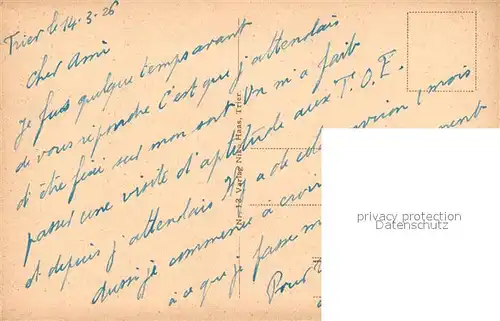 Trier le 14.3.26
Cher Ami
Je fus quelque temps avant
de vous répondre c'est que j'attendais
d'être fixé sur mon sort On m'a fait
passer une visite d'aptitude aux T.O.E.
et depuis j'attendais Il y a de cela environ 1 mois
Aussi je commence à croi
à ce que je fasse m
Pour
Nr. 12 Verlag Nik. Haas, Trier
privacy protection
Copyright